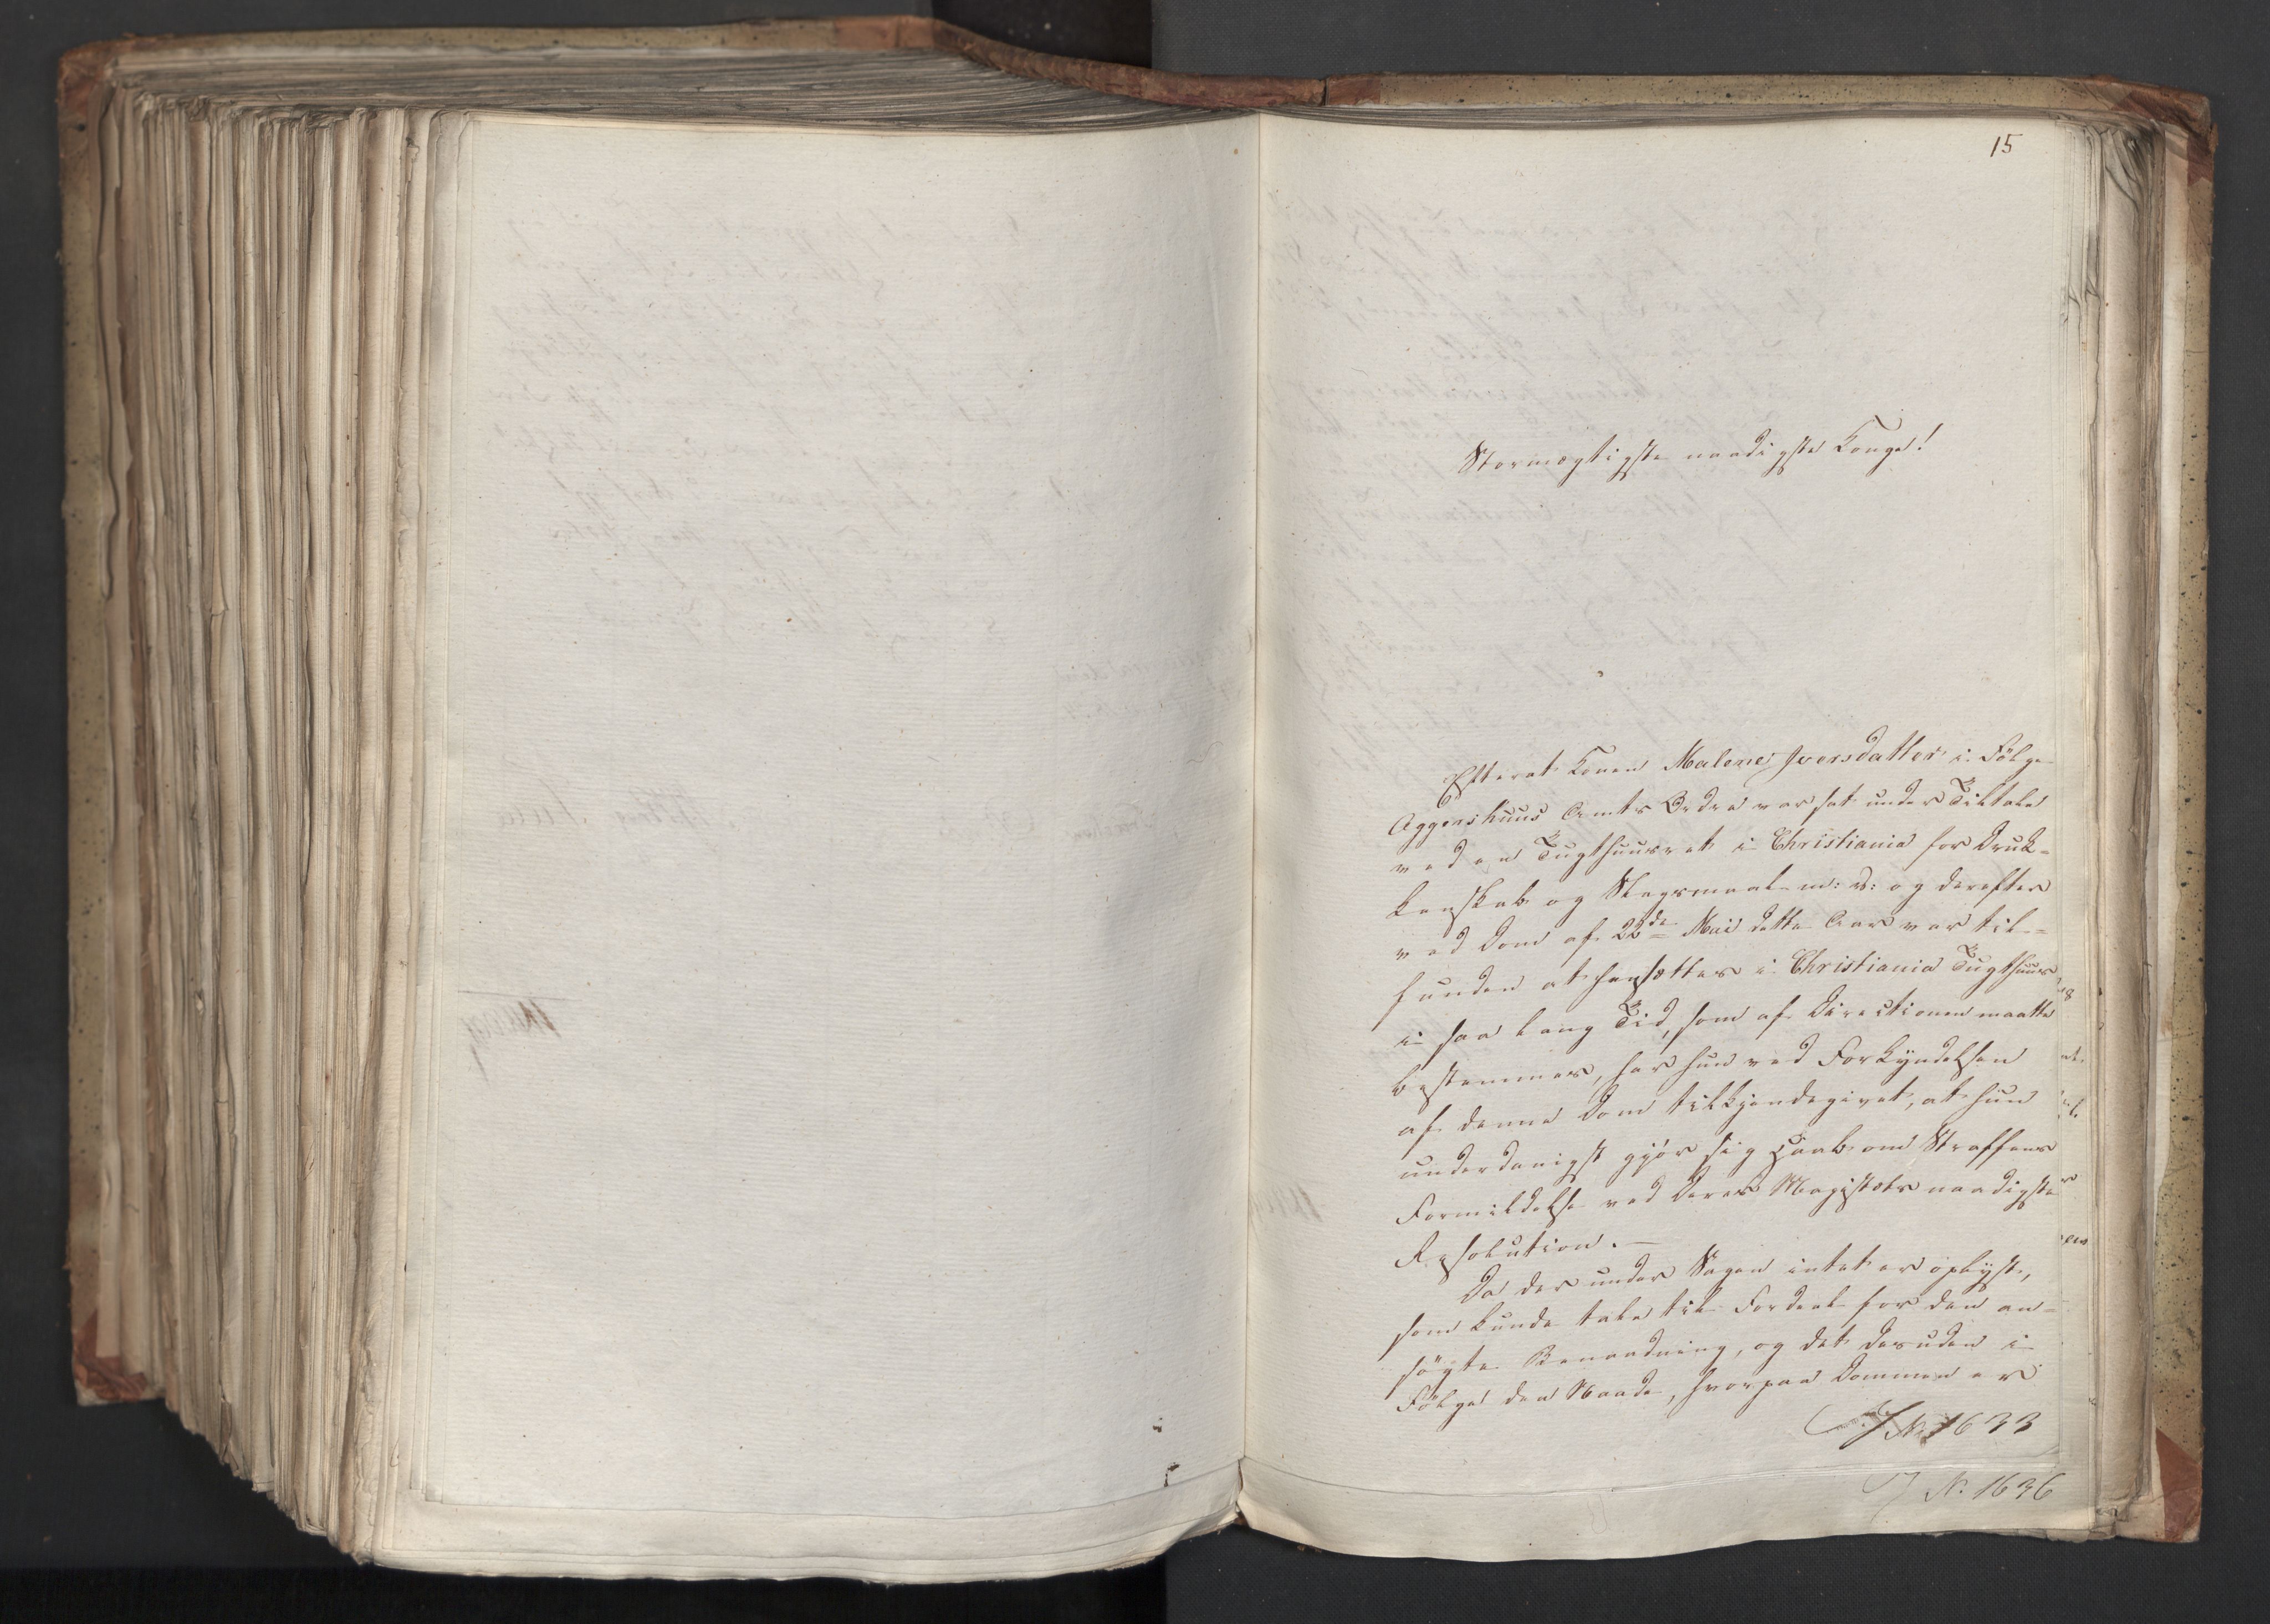 15
Stormægtigste naadigste Konge!
Efterat Konen Malene Iversdatter i Fölge
Aggershuus Amts Ordre var sat under Tiltale
ved en Tugthuusret i Christiania for Druk-
kenskab og Slagsmaal m: v: og derefter
ved Dom af 22de Mai dette Aar var til-
funden at hensættes i Christiania Tugthuus
i saa lang Tid, som af Directionen maatte
bestemmes, har hun ved Forkyndelsen
af denne Dom tilkjendegivet, at hun
underdanigst gjör sig Haab om Straffens
Formildelse ved Deres Majestæts naadigste
Resolution. —
Da der under Sagen intet er oplyst,
som kunde tale til Fordeel for den an-
sögte Benaadning, og det desuden i
Fölge den Maade, hvorpaa Dommen er
J No 1633
J No. 1636